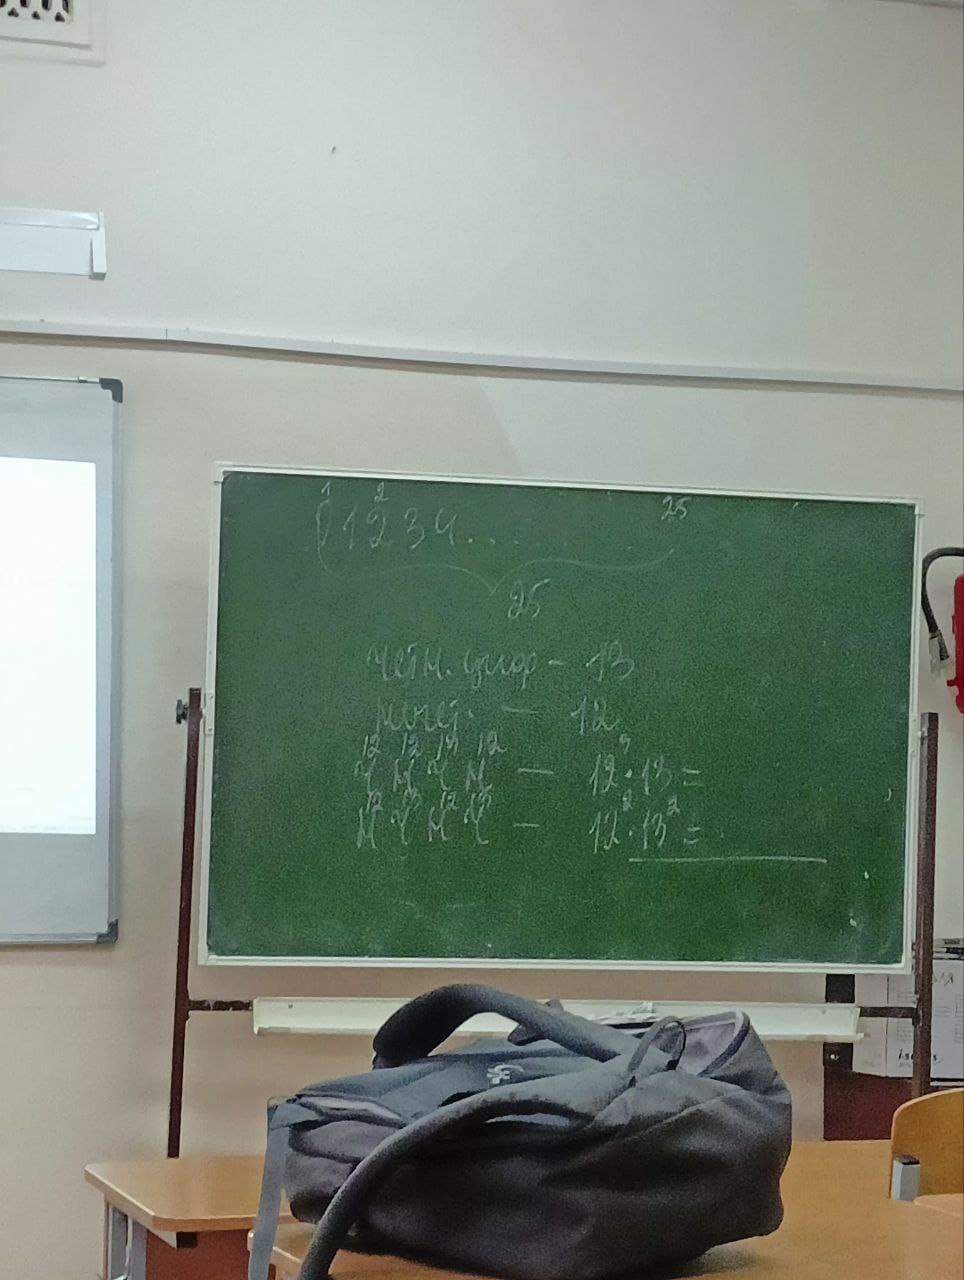 1 2 25
0 1 2 3 4 . . .
25
четн. цифр – 13
нечет. – 12
12 12 13 12
Ч Н Ч Н – 12³·13 =
12 13 12 13
Н Ч Н Ч – 12²·13² =